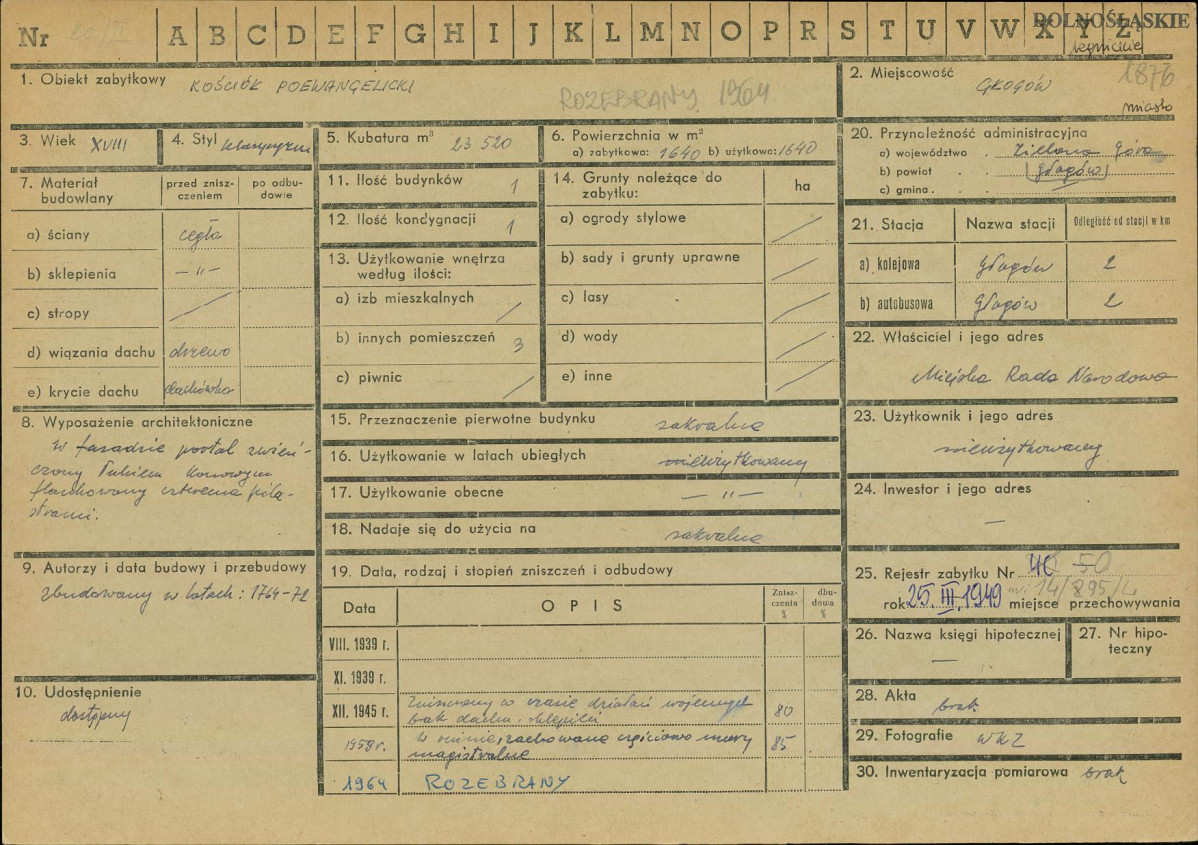 Nr 20/II A B C D E F G H I J K L M N O P R S T U V W X Y Z DOLNOŚLĄSKIE
1. Obiekt zabytkowy KOŚCIÓŁ POEWANGELICKI
ROZEBRANY 1964
2. Miejscowość GŁOGÓW 1876
miasto
3. Wiek XVIII
4. Styl klasycyzm
5. Kubatura m³ 23 520
6. Powierzchnia w m²
a) zabytkowa: 1640 b) użytkowa: 1640
20. Przynależność administracyjna
a) województwo Zielona Góra
b) powiat Głogów
c) gmina
7. Materiał budowlany
przed zniszczeniem
po odbudowie
a) ściany cegła
b) sklepienia — „ —
c) stropy /
d) wiązania dachu drzewo
e) krycie dachu dachówka
11. Ilość budynków 1
12. Ilość kondygnacji 1
13. Użytkowanie wnętrza
według ilości:
a) izb mieszkalnych /
b) innych pomieszczeń 3
c) piwnic /
14. Grunty należące do
zabytku:
ha
a) ogrody stylowe /
b) sady i grunty uprawne /
c) lasy /
d) wody /
e) inne /
21. Stacja Nazwa stacji Odległość od stacji w km
a) kolejowa Głogów 2
b) autobusowa Głogów 2
22. Właściciel i jego adres
Miejska Rada Narodowa
8. Wyposażenie architektoniczne
W fasadzie portal zwień-
czony łukiem koszowym
flankowany czterema pila-
strami.
15. Przeznaczenie pierwotne budynku sakralne
16. Użytkowanie w latach ubiegłych nieużytkowany
17. Użytkowanie obecne — „ —
18. Nadaje się do użycia na sakralne
23. Użytkownik i jego adres
nieużytkowany
24. Inwestor i jego adres
—
9. Autorzy i data budowy i przebudowy
zbudowany w latach: 1764-72
10. Udostępnienie
dostępny
19. Data, rodzaj i stopień zniszczeń i odbudowy
Data OPIS Zniszczenia % dbudowa %
VIII. 1939 r.
XI. 1939 r.
XII. 1945 r. Zniszczony w czasie działań wojennych
brak dachu, sklepień 80
1959 r. W ruinie, zachowane częściowo mury
magistralne 85
1964 ROZEBRANY
25. Rejestr zabytku Nr 40 50
14/895/
rok 25. III. 1949 miejsce przechowywania
26. Nazwa księgi hipotecznej
—
27. Nr hipo-
teczny
28. Akta brak
29. Fotografie WKZ
30. Inwentaryzacja pomiarowa brak